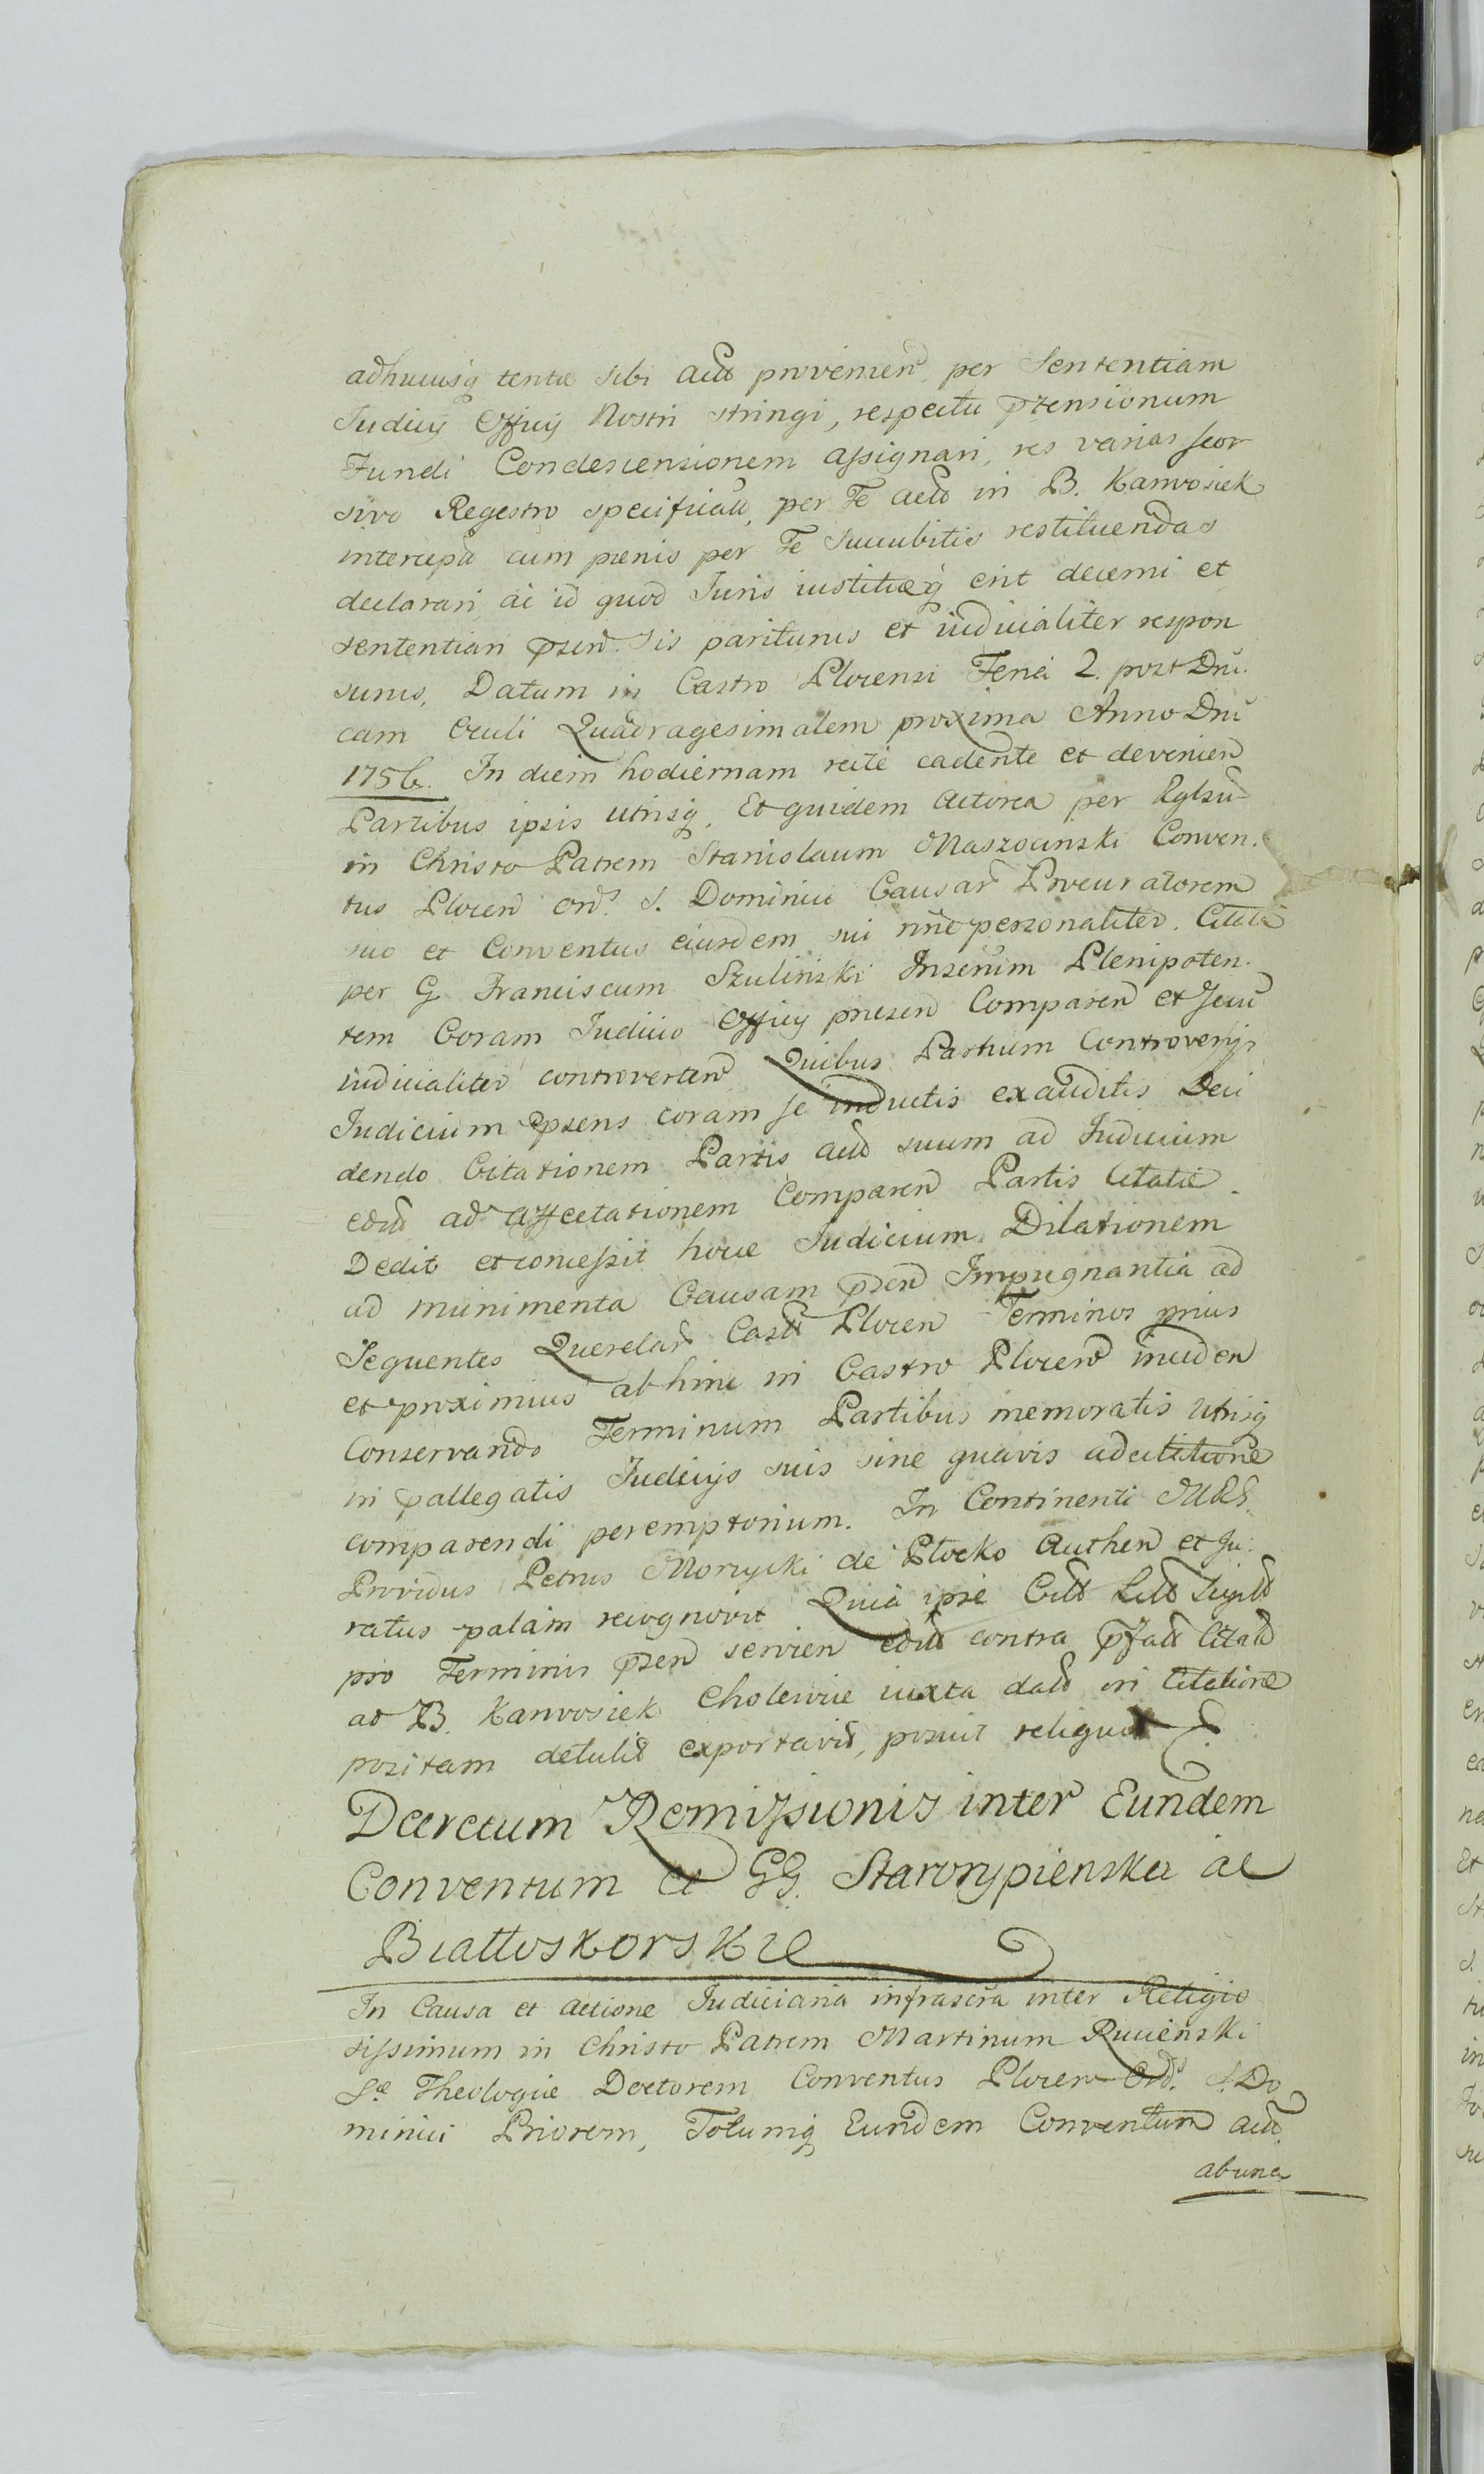 adhucusq tentæ sibi Act provenien per Sententiam
Judicij Officij Nostri stringi, respectu prtensionum
Fundi Condescensionem assignari, res varias seor
sivo Regestro specificat, per Te act in B. Karwosiek
intercepta cum pænis per Te succubitis restituendas
declarari ac id quod Juris iustitiæq erit decerni et
sententiari prsen. Sis pariturus et iudicialiter respon
surus, Datum in Castro Plocensi Feria 2. post Dni.
cam Oculi Quadragesimalem proxima Anno Dni
1756. In diem hodiernam recte cadente et devenien
Partibus ipsis utrisq, Et quidem Actorea per Rglsu
in Christo Patrem Stanislaum Maszocinski Conven.
tus Plocen Ord. S. Dominici Causar Procuratorem
suo et Conventus eiusdem sui nne personaliter. Citata
per G Franciscum Szulinski Inserum Plenipoten.
tem Coram Judicio Officij præsen Comparen et Secu
iudicialiter controverten Quibus Partium Controversijs
Judicium prsens coram se inductis exauditis Deci
dendo Citationem Partis act suum ad Judicium
edit ad affectationem Comparen Partis Citatæ
Dedit et concessit hocce Judicium Dilationem
ad munimenta Causam prsen Impugnantia ad
Sequentes Querelar Castr Plocen Terminos prius
et proximius abhinc in Castro Plocen inciden
Conservando Terminum Partibus memoratis utrisq
in pallegatis Judicijs suis sine quavis adcitatione
comparendi peremptorium. In Continenti MRS.
Providus Petrus Morzycki de Plocko Authen et Ju.
ratus palam recognovit Quia ipse Citt Litt Sigill
pro Terminis prsen servien edit contra pfatt Citatt
ad B. Karwosiek Cholewice iuxta datt in Citatione
positam detulit exportavit, posuit reliquit
Decretum Remissionis inter Eundem
Conventum et GG. Starorypienska ac
Białłoskorskie
In Causa et actione Judiciaria infrascra inter Religio
sissimum in Christo Patrem Martinum Rucienski
Sæ Theologiæ Doctorem Conventus Plocen Ord. S. Do
minici Priorem, Totumq Eundem Conventum act
ab una